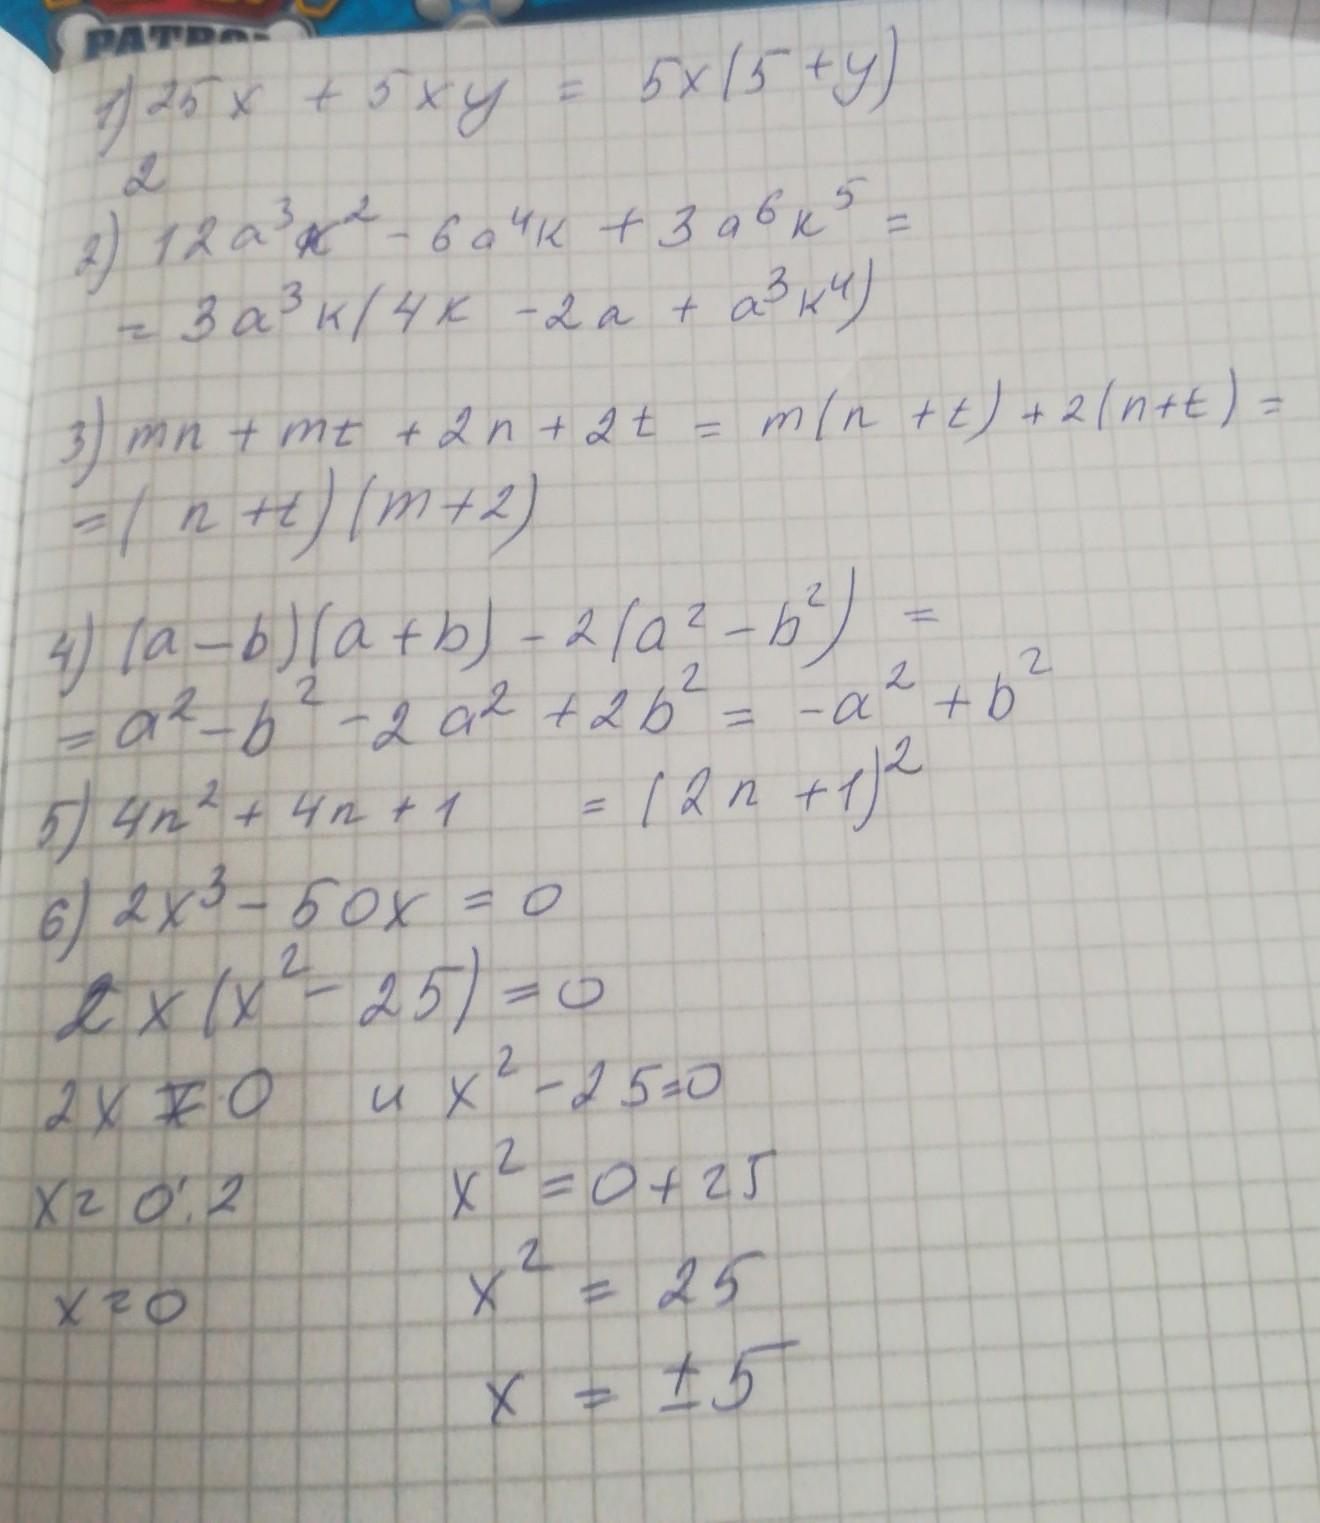 PATROL
1) 25x + 5xy = 5x(5+y)
2
2) 12a³к² - 6a⁴к + 3a⁶к⁵ =
= 3a³к(4к - 2a + a³к⁴)
3) mn + mt + 2n + 2t = m(n + t) + 2(n+t) =
= (n+t)(m+2)
4) (a-b)(a+b) - 2(a² - b²) =
= a² - b² - 2a² + 2b² = -a² + b²
5) 4n² + 4n + 1 = (2n + 1)²
6) 2x³ - 50x = 0
2x(x² - 25) = 0
2x = 0 и x² - 25=0
x = 0:2 x² = 0+25
x=0 x² = 25
x = ±5